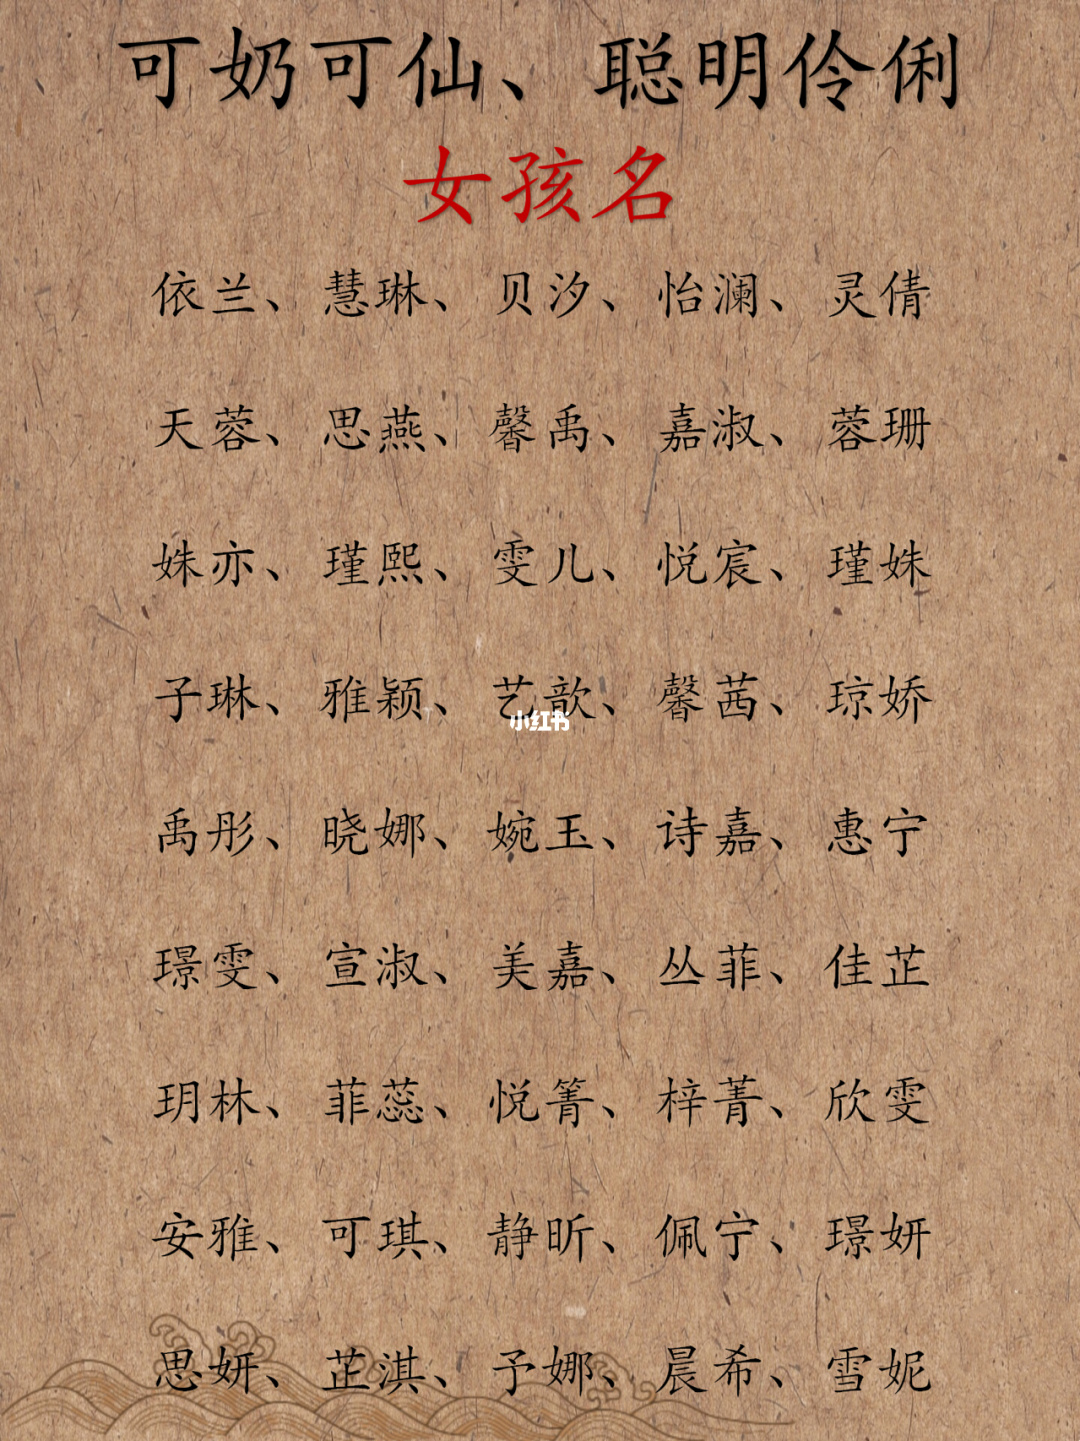 可奶可仙、聪明伶俐
女孩名
依兰、慧琳、贝汐、怡澜、灵倩
天蓉、思燕、馨禹、嘉淑、蓉珊
姝亦、瑾熙、雯儿、悦宸、瑾姝
子琳、雅颖、艺歆、馨茜、琼娇
小红书
禹彤、晓娜、婉玉、诗嘉、惠宁
璟雯、宣淑、美嘉、丛菲、佳芷
玥林、菲蕊、悦箐、梓菁、欣雯
安雅、可琪、静昕、佩宁、璟妍
思妍、芷淇、予娜、晨希、雪妮